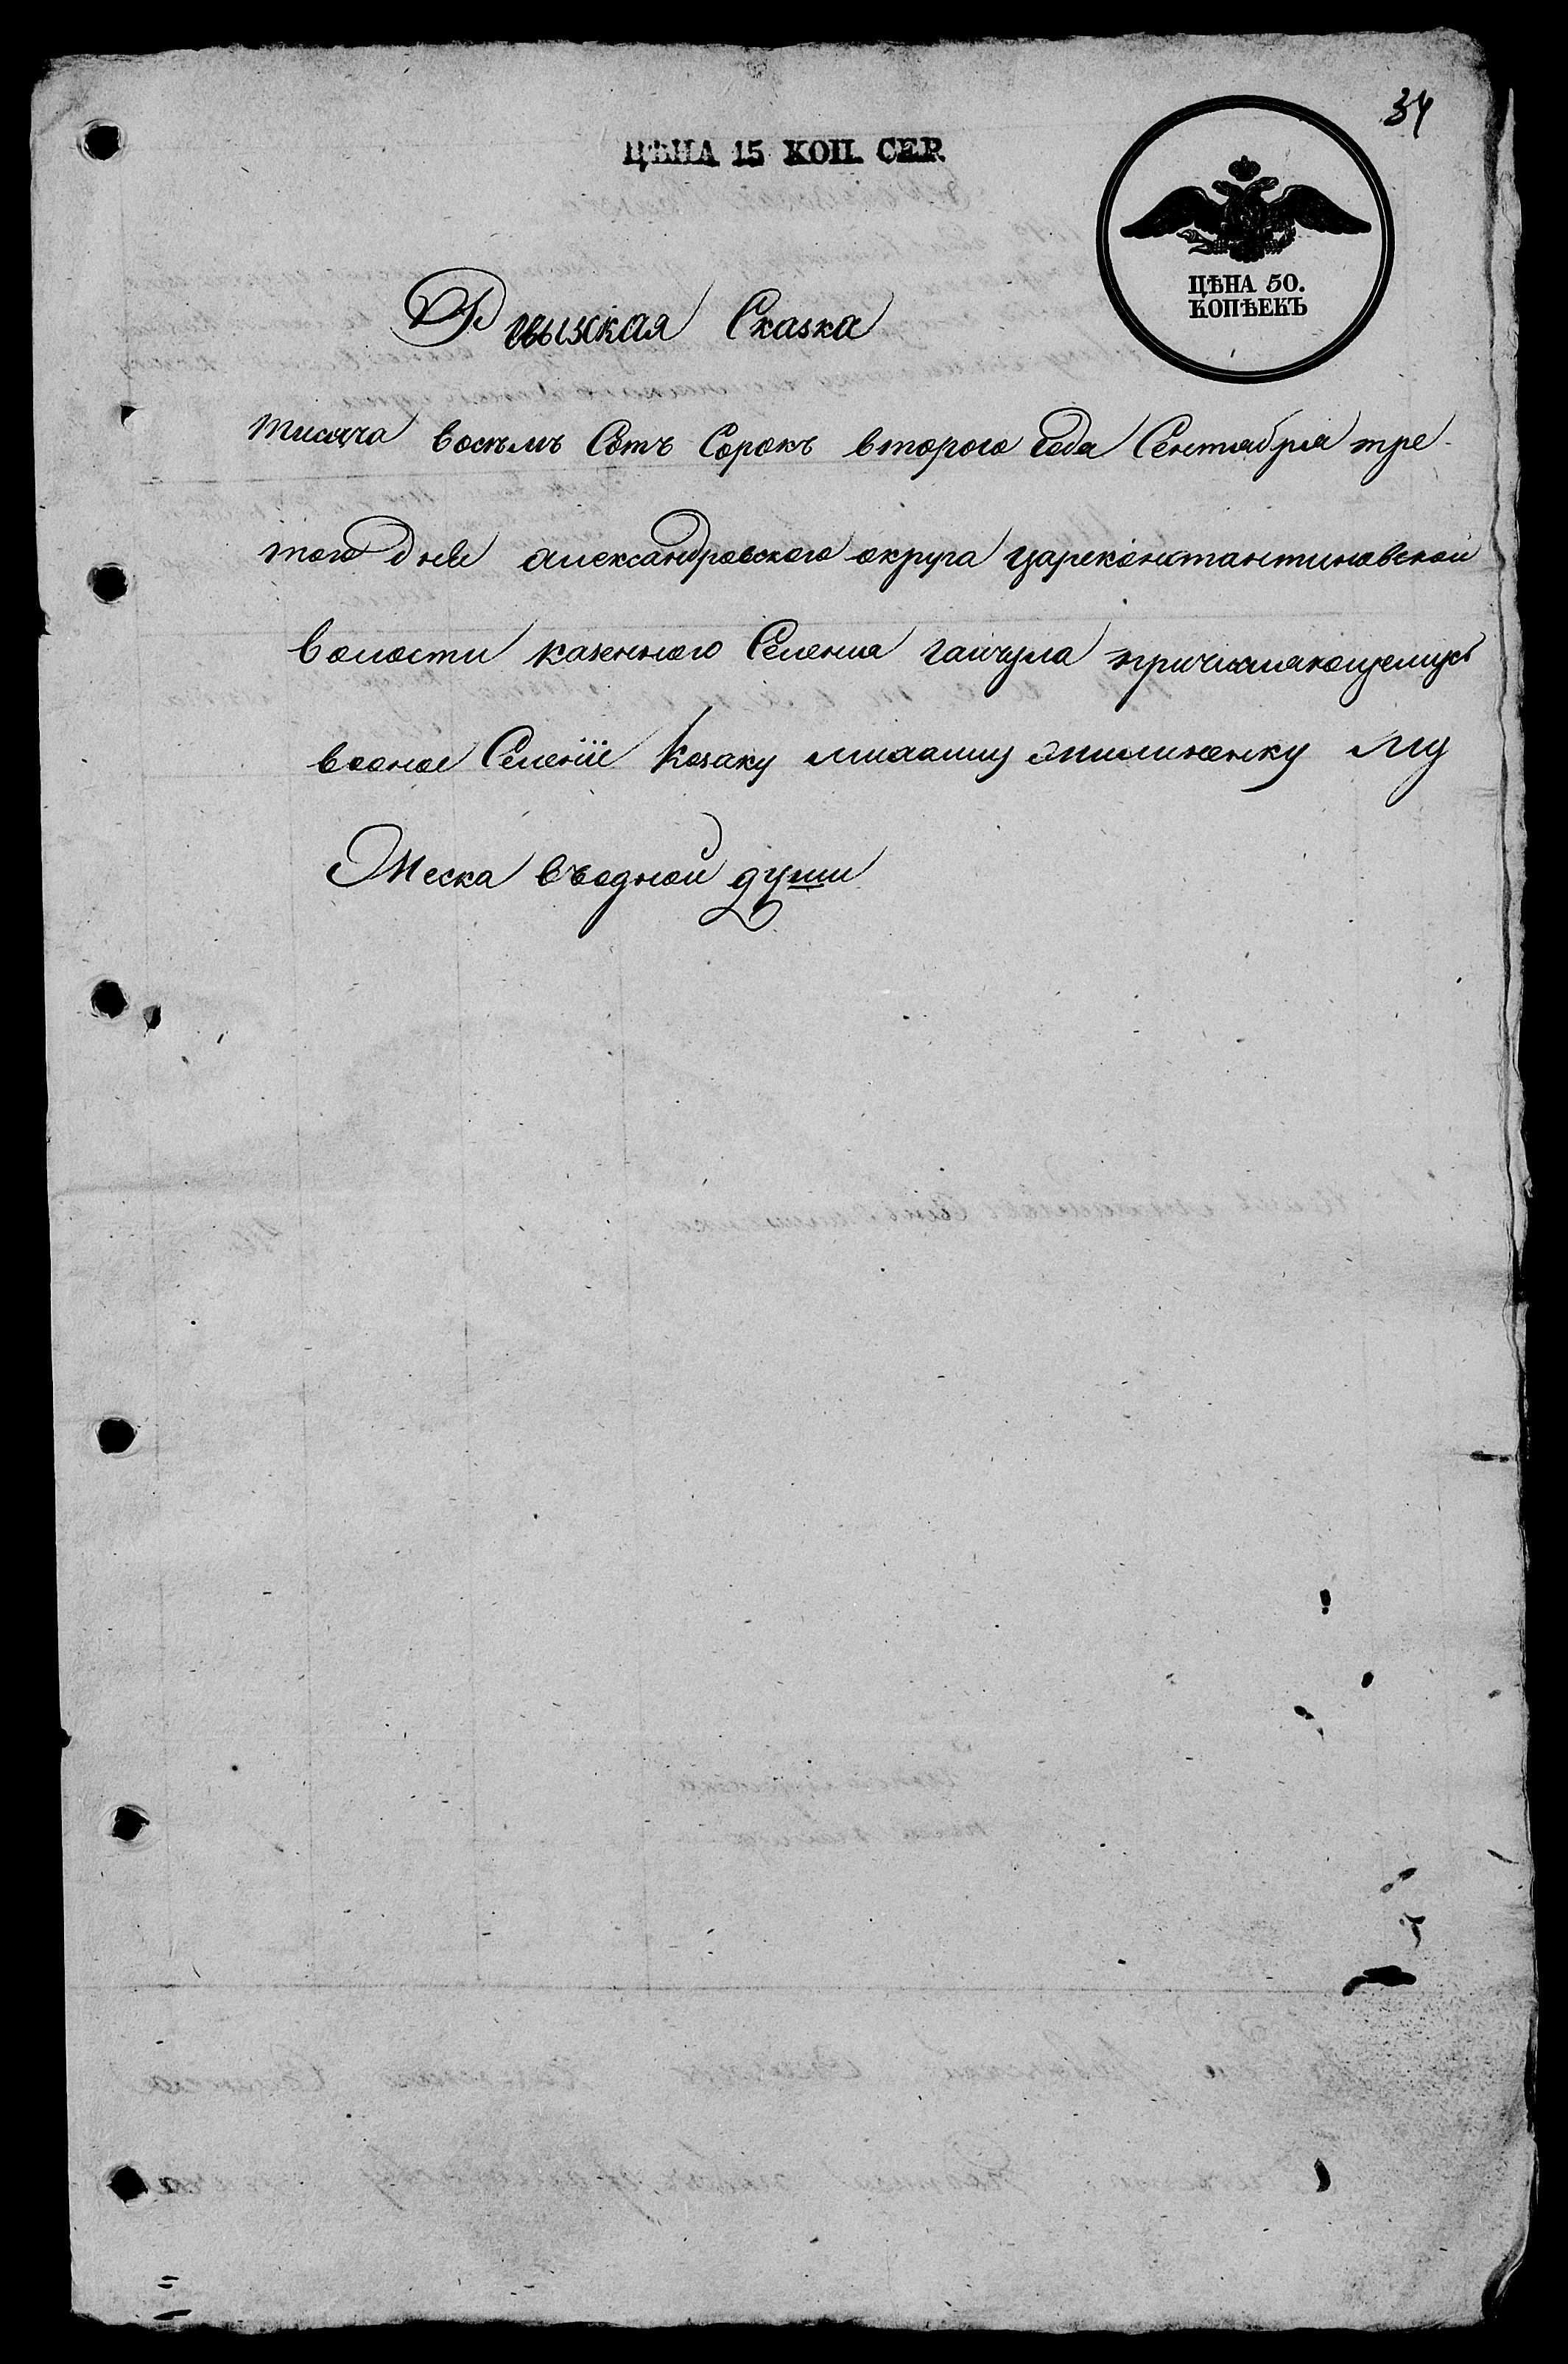 34
ЦѢНА 15 КОП. СЕР.
ЦѢНА 50.
КОПѢЕКЪ
Рвызская Сказка
тисяча восемъ Сотъ Сорокъ второго года Сентября тре-
того дня александровского округа цареконстантиновской
волости казенного Селения гайчула причисляющемусъ
вооное Селенiе козаку Му
Жеска въодной души